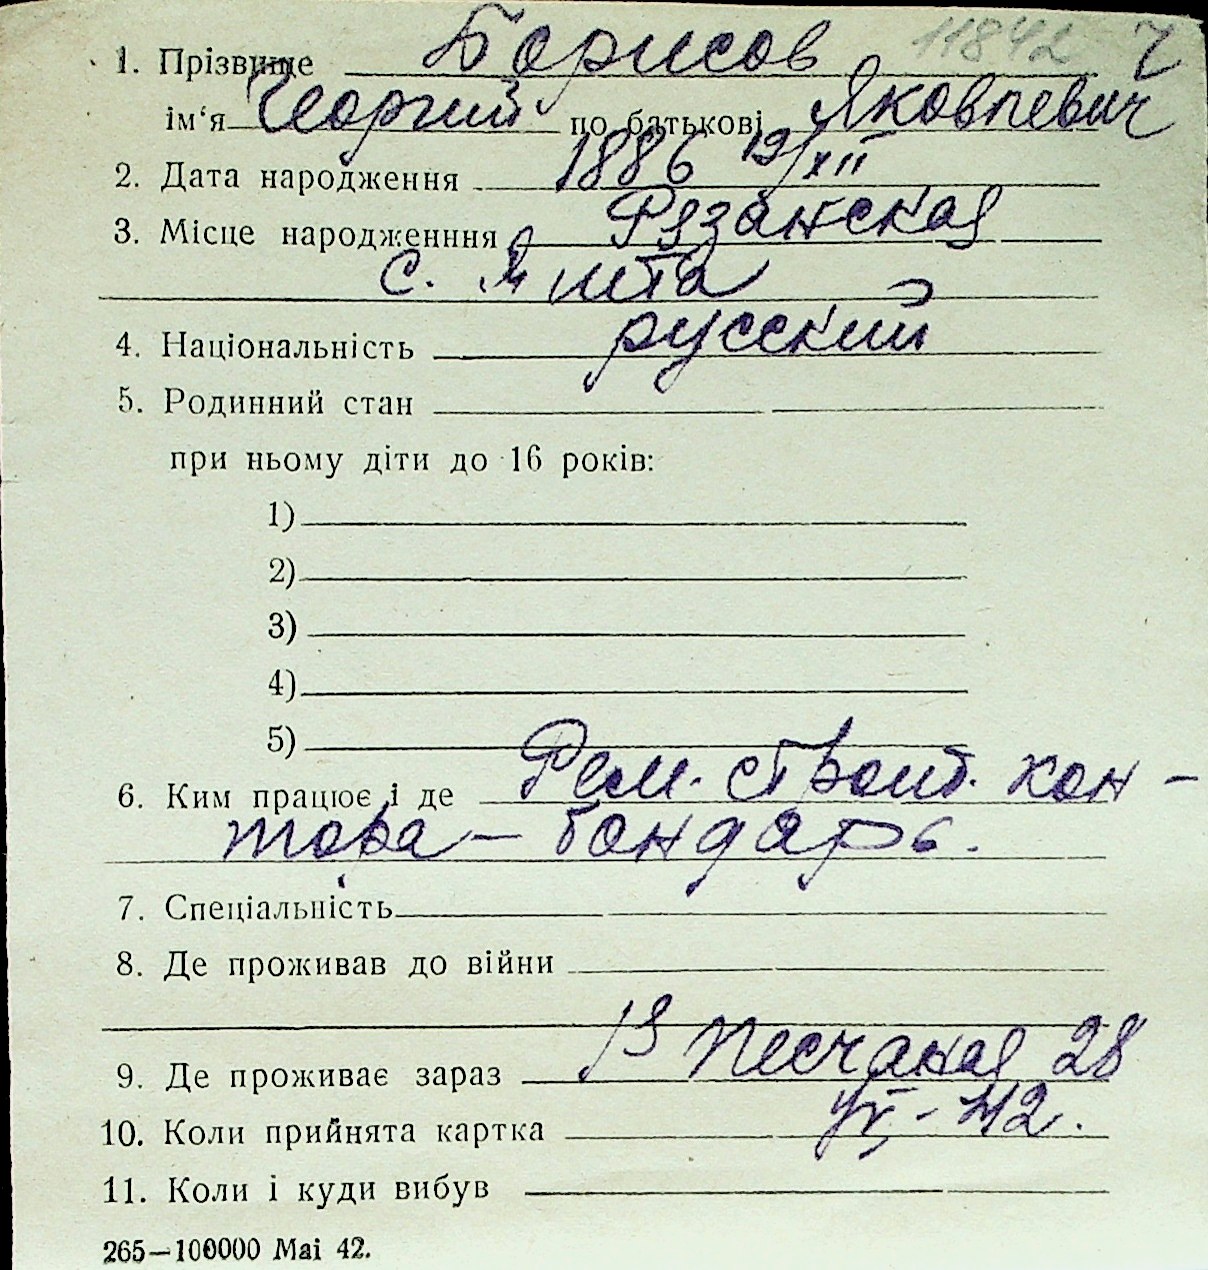 11842
1. Прізвище Борисов
ім‘я Георгий по батькові Яковлевич
2. Дата народження 1886 19/XII
3. Місце народженння Рязанская
с.
4. Національність русский
5. Родинний стан
при ньому діти до 16 років:
1)
2)
3)
4)
5)
6. Ким працює і де Рем. строит. кон-
тора – бондарь.
7. Спеціальність
8. Де проживав до війни
9. Де проживає зараз Песчаная 28
10. Коли прийнята картка 42.
11. Коли і куди вибув
265—100000 Mai 42.